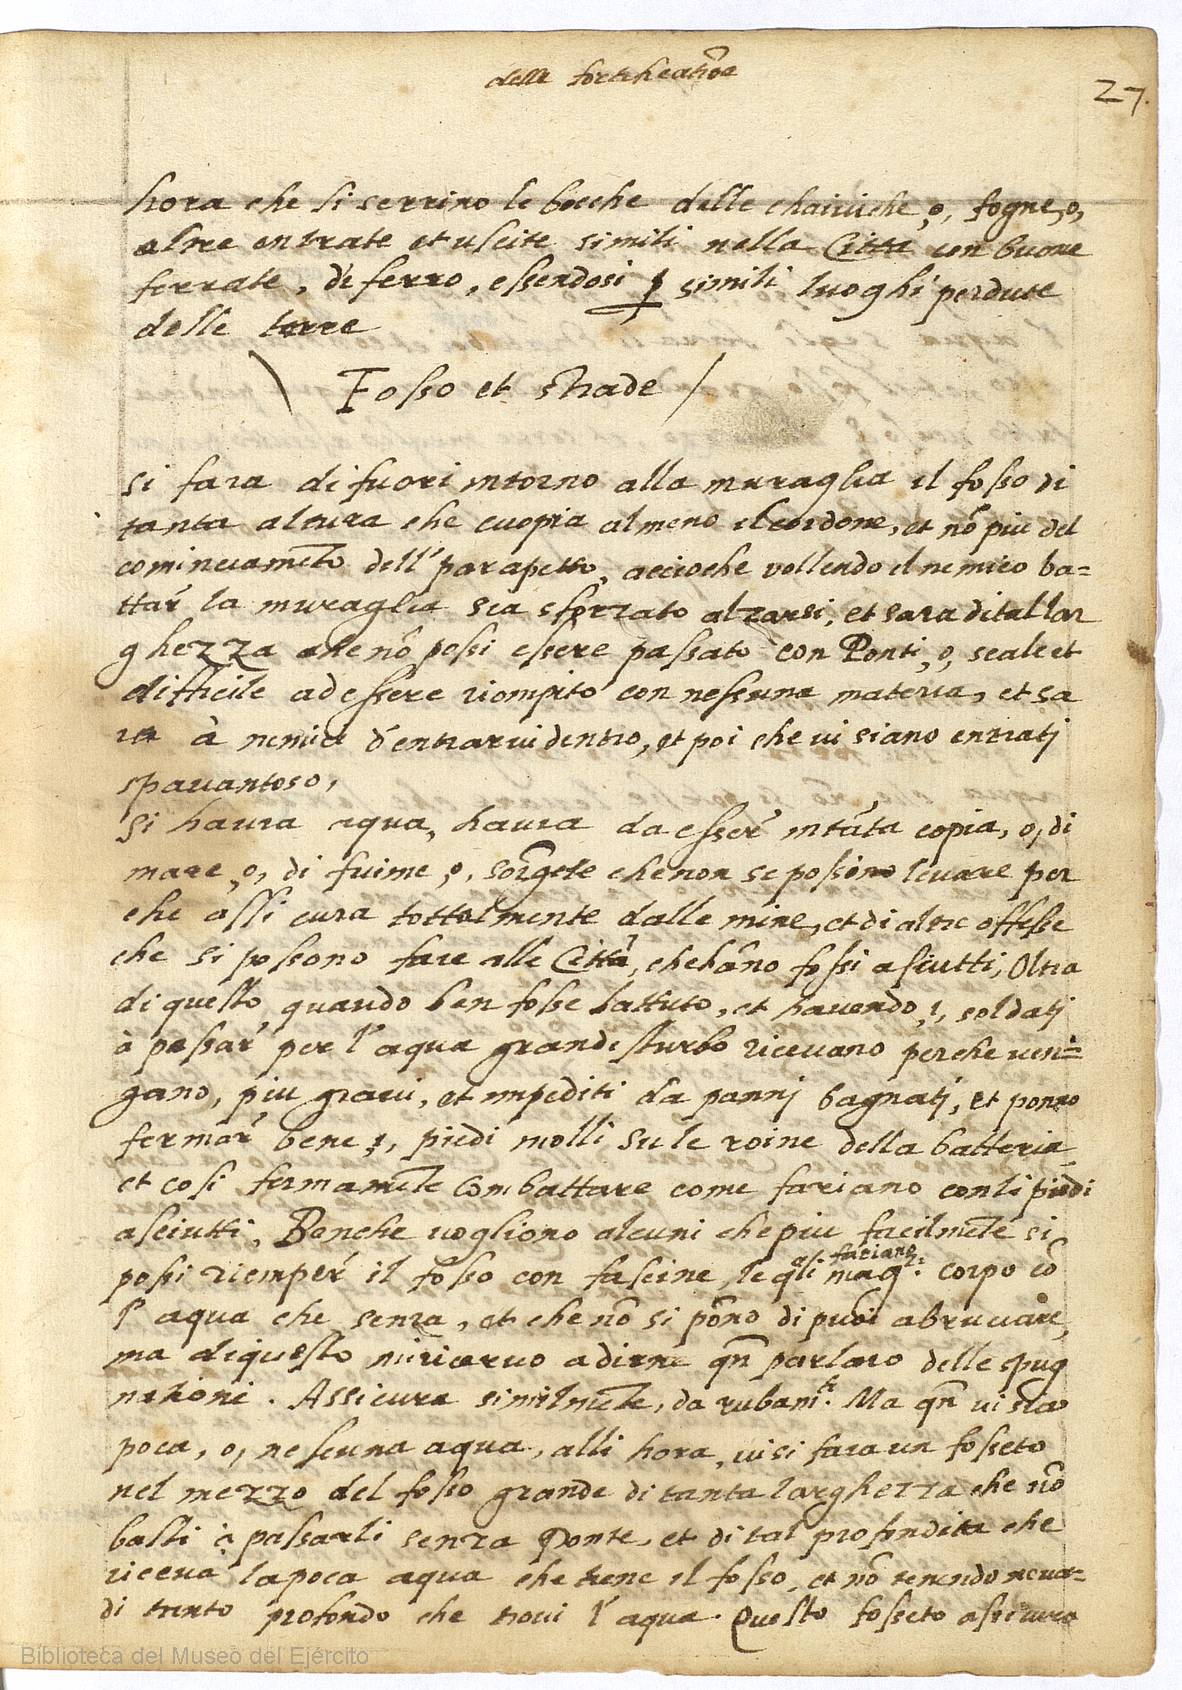 delle fortificatiõe
27.
hora che si serrino le bocche delle chaiviche, o, fogne, o,
altre entrate et uscite simili nella Città con buone
ferrate, di ferro, essendosi ꝑ simili luoghi perdute
delle terre
Fosso et strade
si fara di fuori intorno alla muraglia il fosso di
tanta altura che cuopia almeno il cordone, et nõ piu del
cominciamẽto dell' parapetto, accioche vollendo el nemico ba=
ttar la muraglia sia sforzato alzarsi, et sara di tal lar
ghezza che nõ possi essere passato con Ponti, o, scale et
difficile ad essere riompito con nessuna materia, et sa
ra à nemici d'entrarvi dentro, et poi che vi siano entratj
spavantoso,
si havra aqua, havra da esser' in tãta copia, o, di
mare, o, di fuime, o, sorgete che non se possino levare per
che assi cura tottalmente dalle mine, et di altre offesse
che si possono fare alle Città, che hãno fossi asiutti, Oltra
di questo quando ben fosse battuto, et havendo, i, soldatj
à passar' per l'aqua grande sturbo ricevano perche ven=
gano, piu gravi, et impediti da pannj bagnatj, et ponno
fermar' bene, i, piedi molli su le roine della batteria
et cosi fermamẽte combattare come fariano con li piedi
asciutti, Benche vogliono alcuni che piu facilmẽte si
possi riemper' il fosso con fascine, le qli faciano mag.r corpo cõ
l'aqua che senza, et che nõ si põno di puoi abruciare,
ma di questo mi riservo a dirne qñ parlaro delle espug
nationi. Assicura similmẽte, da rubam.ti Ma qñ vi sia
poca, o, nescuna aqua, alli hora, vi si fara un fosseto
nel mezzo del fosso grande di tanta larghezza che nõ
basti à passarli senza Ponte, et di tal profondita che
riceva la poca aqua che tiene il fosso, et nõ tenendo ne va=
di tanto profondo che trovi l'aqua. Questo fosseto assicura
Biblioteca del Museo del Ejército